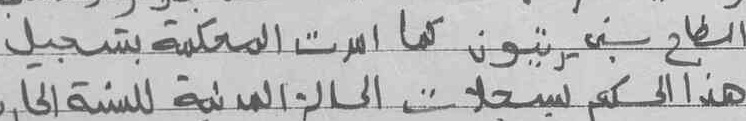 الطاح سني يرتبون كما امرت المحكمة بتسجيل
هذا الحكم لسجلات الحالة المدنية للسنة الجار